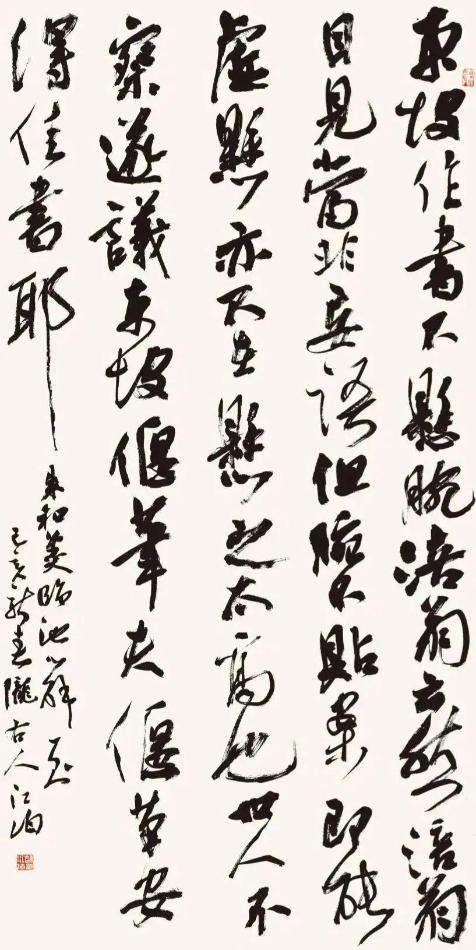 東坡作書不懸腕涪翁云然涪翁
目見當非妄語但腕不貼案即能
虛懸亦不在懸之太高也世人不
察遂議東坡偃筆夫偃筆安
得佳書耶
朱和羹臨池心解
己亥新春隴右人江